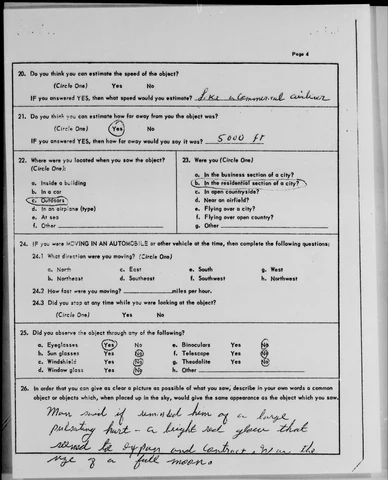 Page 4
20. Do you think you can estimate the speed of the object?
(Circle One) Yes No
IF you answered YES, then what speed would you estimate? Like a commercial airliner
21. Do you think you can estimate how far away from you the object was?
(Circle One) Yes No
IF you answered YES, then how far away would you say it was? 5000 ft
22. Where were you located when you saw the object?
(Circle One):
a. Inside a building
b. In a car
c. Outdoors
d. In an airplane (type)
e. At sea
f. Other
23. Were you (Circle One)
a. In the business section of a city?
b. In the residential section of a city?
c. In open countryside?
d. Near an airfield?
e. Flying over a city?
f. Flying over open country?
g. Other
24. IF you were MOVING IN AN AUTOMOBILE or other vehicle at the time, then complete the following questions:
24.1 What direction were you moving? (Circle One)
a. North c. East e. South g. West
b. Northeast d. Southeast f. Southwest h. Northwest
24.2 How fast were you moving? miles per hour.
24.3 Did you stop at any time while you were looking at the object?
(Circle One) Yes No
25. Did you observe the object through any of the following?
a. Eyeglasses Yes No e. Binoculars Yes No
b. Sun glasses Yes No f. Telescope Yes No
c. Windshield Yes No g. Theodolite Yes No
d. Window glass Yes No h. Other
26. In order that you can give as clear a picture as possible of what you saw, describe in your own words a common
object or objects which, when placed up in the sky, would give the same appearance as the object which you saw.
Man said it reminded him of a large
pulsating - a bright red glow that
seemed to expan and contract. Was the
size of a full moon.